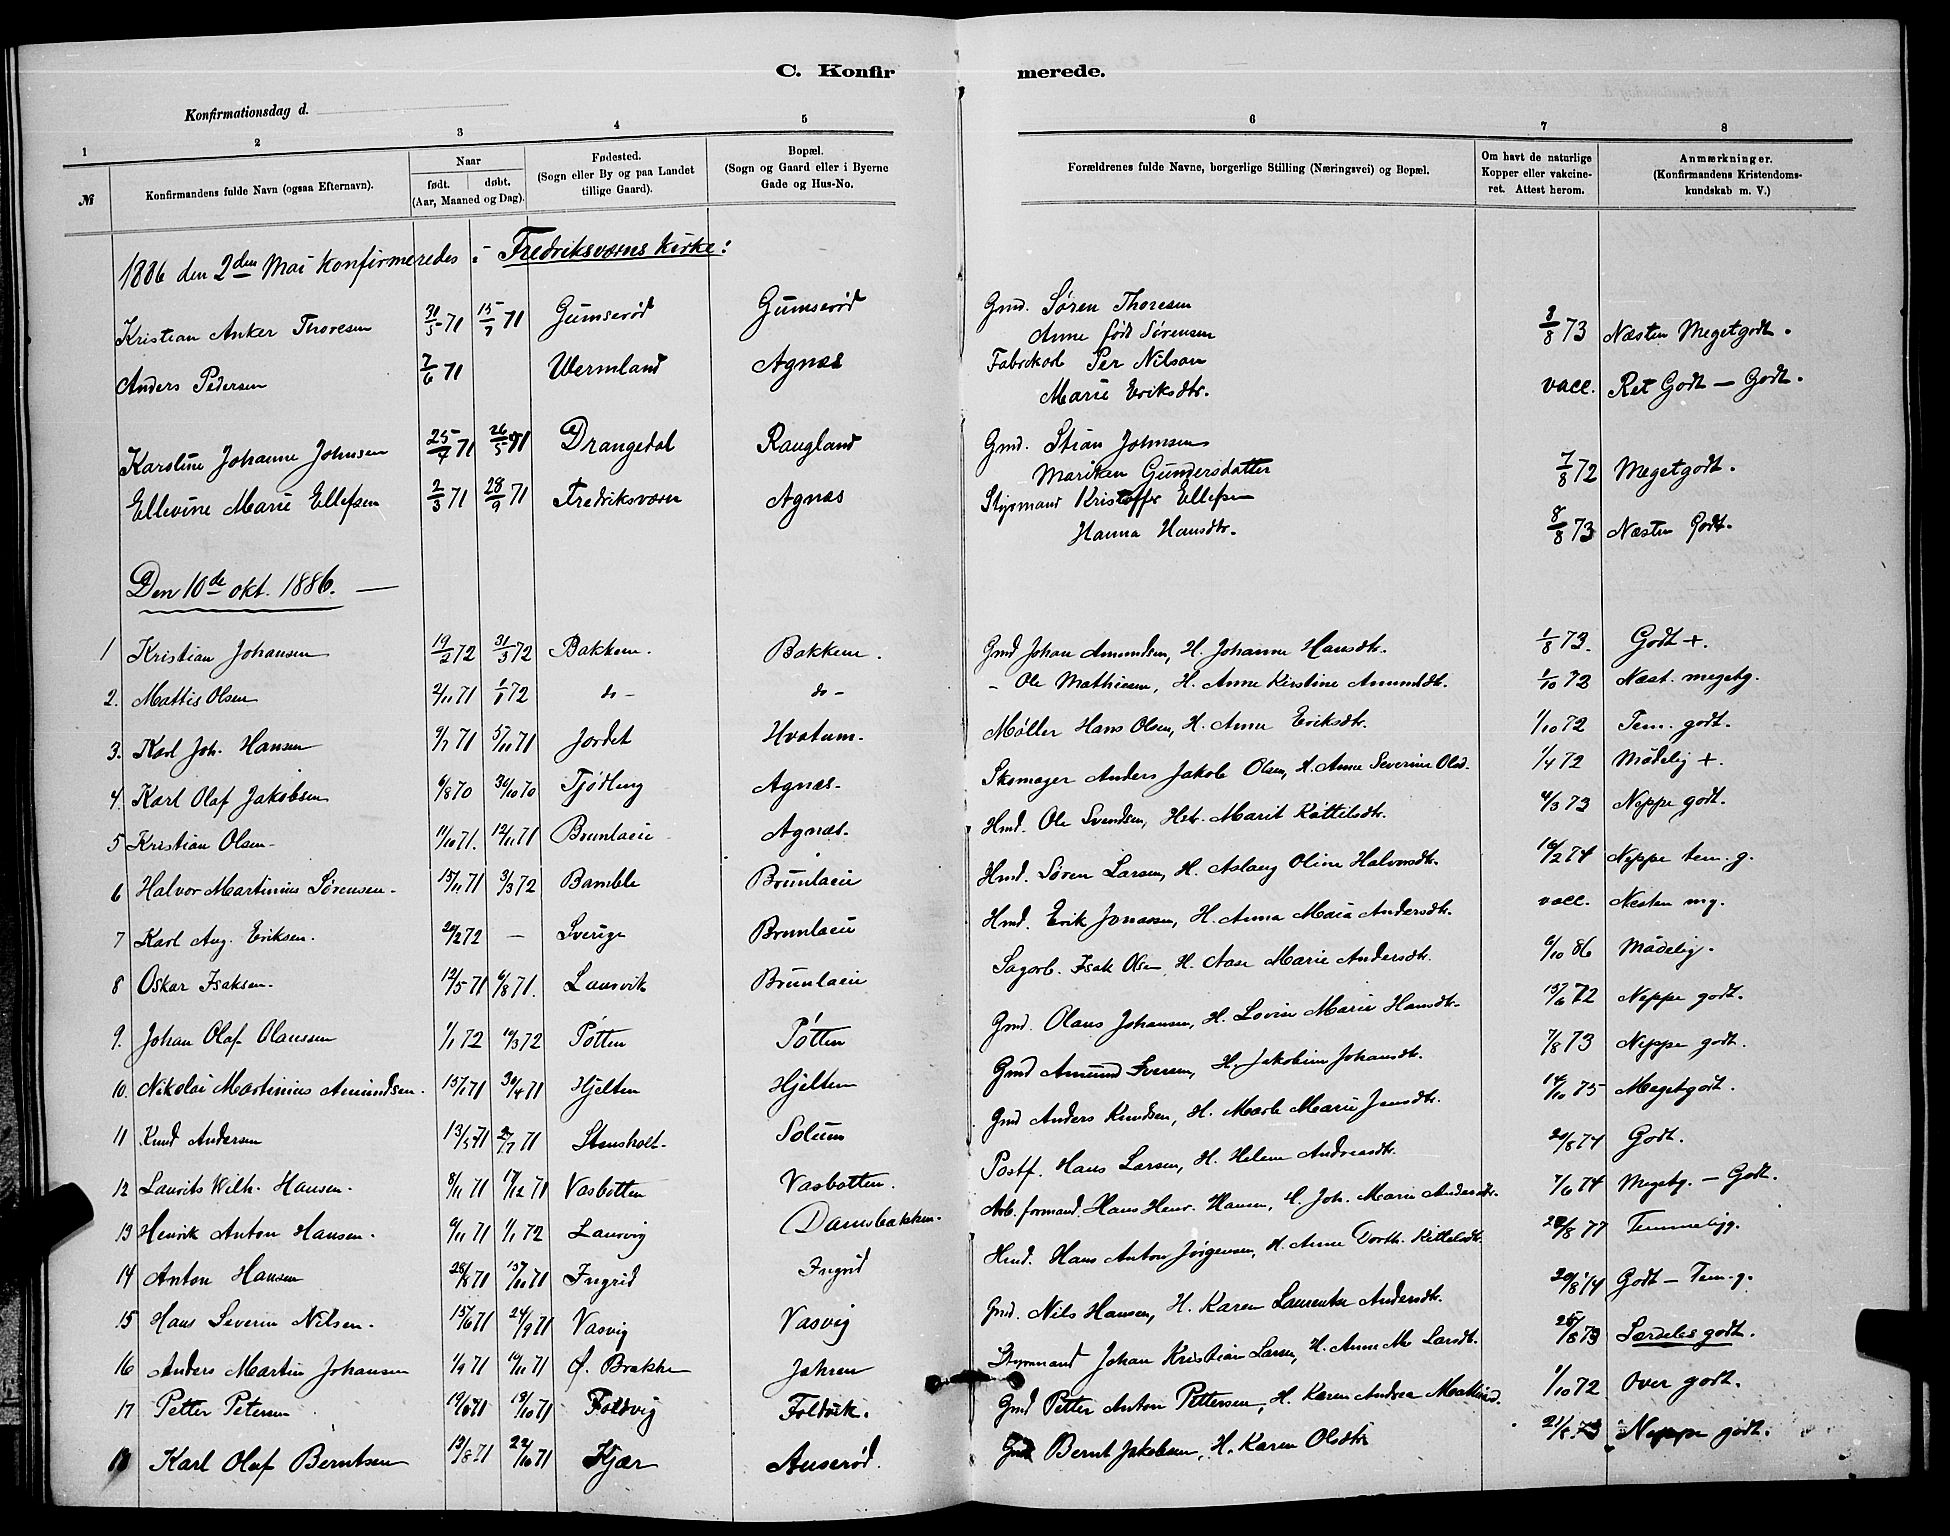 C. Konfir merede.
Konfirmationsdag d.
1 2 3 4 5 6 7 8
№ Konfirmandens fulde Navn (ogsaa Efternavn). Naar født. døbt. (Aar, Maaned og Dag). Fødested. (Sogn eller By og paa Landet tillige Gaard). Bopæl. (Sogn og Gaard eller i Byerne Gade og Hus-No. Forældrenes fulde Navne, borgerlige Stilling (Næringsvei) og Bopæl. Om havt de naturlige Kopper eller vakcineret. Attest herom. Anmærkninger. (Konfirmandens Kristendomskundskab m. V.)
1886 den 2den Mai konfirmeredes i Fredriksværns Kirke:
Kristian Anker Thoresen 31/5 71 15/7 71 Gumserød Gumserød Gmd. Søren Thoresen 8/8 73 Næsten Megetgodt.
Anne født Sørensen
Anders Pedersen 7/6 71 Wermland Agnæs Fabrikarb Per Nilson vacc. Ret Godt — Godt.
Marie Eriksdtr.
Karoline Johanne Johnsen 25/4 71 26/5 71 Drangedal Raugland Gmd. Stian Johnsen 7/8 72 Megetgodt.
Mariken Gundersdatter
Ellevine Marie Ellefsen 2/3 71 28/9 71 Fredriksværn Agnæs Styrmand Kristoffer Ellefsen 8/8 73 Næsten Godt.
Hanna Hansdtr.
Den 10de okt. 1886. —
1 Kristian Johansen 19/2 72 31/3 72 Bakken. Bakken. Gmd Johan Amundsen, H. Johanne Hansdtr. 1/8 73. Godt +.
2. Mattis Olsen 2/11 71 1/1 72 do - do - - Ole Mathiesen, H. Anne Kirstine Amundsdtr. 1/10 72 Næst. megetg.
3. Karl Joh. Hansen 9/7 71 5/11 71 Jordet Hvatum. Møller Hans Olsen, H. Anne Eriksdtr. 1/10 72 Tem. godt.
4. Karl Olaf Jakobsen 6/8 70 30/10 70 Tjødling Agnæs. Skomager Anders Jakob Olsen, H. Anne Severine Olsd. 1/4 72 Mådelig +.
5 Kristian Olsen 11/10 71. 12/11 71 Brunlaeie Agnæs. Hmd. Ole Svendsen, Hstr. Marit Kittilsdtr. 4/3 73 Neppe godt.
6 Halvor Martinius Sørensen. 15/11 71 3/3 72 Bamble Brunlaeie Hmd. Søren Larsen, H. Aslaug Oline Halvorsdtr. 16/2 74 Neppe tem. g.
7 Karl Aug. Eriksen. 20/2 72 — Sverige Brunlaeie Hmd. Erik Jonassen, H. Anna Maia Andersdtr. vacc. Næsten mg.
8 Oskar Isaksen. 12/5 71 6/8 71. Laurvik Brunlaeie Sagarb. Isak Olsen, H. Aase Marie Andersdtr. 6/10 86 Mådelig.
9. Johan Olaf Olaussen 1/1 72 10/3 72 Pøtten Pøtten Gmd. Olaus Johansen, H. Lovise Marie Hansdtr. 15/6 72 Neppe godt.
10. Nikolai Martinius Amundsen. 15/1 71 30/4 71 Hjelten Hjelten Gmd Amund Iversen, H. Jakobine Johansdtr. 7/8 73 Neppe godt.
11 Knud Andersen 13/5 71 2/7 71 Stensholt. Solum Gmd Anders Knudsen, H. Maria Marie Jensdtr. 14/10 75 Megetgodt.
12 Laurits Wilh. Hansen. 8/11 71 17/12 71 Vasbotten Vasbotten. Postf. Hans Larsen, H. Helene Andreasdtr. 20/8 74 Godt.
13 Henrik Anton Hansen. 6/11 71 1/1 72 Laurvig Damsbakken. Arb. formand. Hans Henr. Hansen, H. Joh. Marie Andersdtr. 7/6 74 Megetg. — Godt.
14 Anton Hansen 28/8 71 15/10 71 Ingrid Ingrid Hmd. Hans Anton Jørgensen, H. Anne Dorth. Kittelsdtr. 28/8 77 Temmeligg.
15 Hans Severin Nilsen. 15/6 71 24/9 71 Vasvig Vasvig Gmd. Nils Hansen, H. Karen Laurentse Andersdtr. 20/8 74 Godt — Tem. g.
16 Anders Martin Johansen 1/9 71 19/11 71 Ø. Brække Jahren Styrmand Johan Kristian Larsen, H. Anne Ma Larsdtr. 25/8 73 Særdeles godt.
17 Petter Petersen 19/6 71 18/10 71 Foldvig Foldvik. Gmd Petter Anton Pettersen, H. Karen Andrea Mathisd. 1/10 72 Over godt.
18 Karl Olaf Berntsen 13/8 71 22/10 71 Kjær Auserød. Gmd Bernt Jakobsen, H. Karen Olsdtr 21/8 73 Neppe godt.